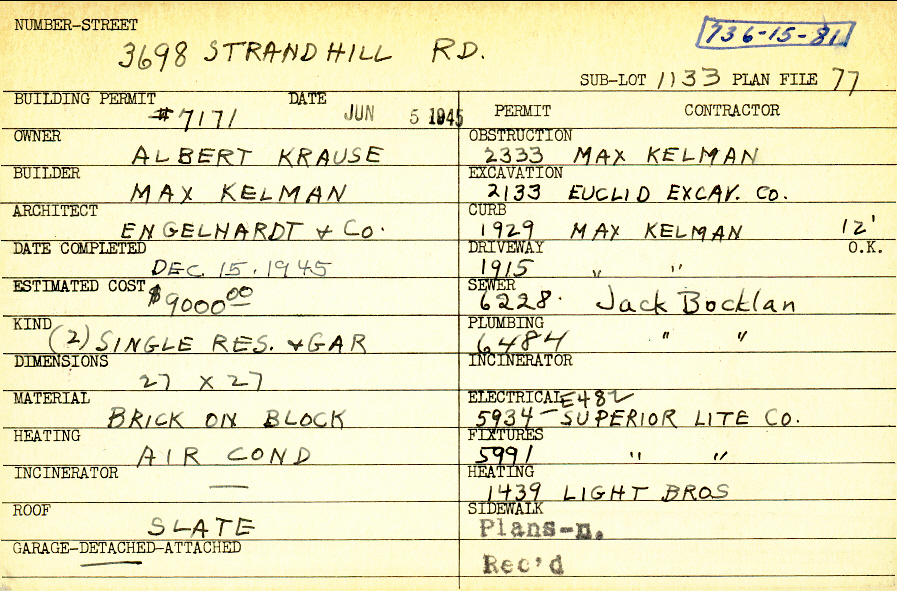 NUMBER-STREET
736-15-81
3698 STRANDHILL RD.
SUB-LOT 1133 PLAN FILE 77
BUILDING PERMIT DATE
#7171 JUN 5 1945
OWNER
ALBERT KRAUSE
BUILDER
MAX KELMAN
ARCHITECT
ENGELHARDT & Co.
DATE COMPLETED
DEC. 15. 1945
ESTIMATED COST $9000.00
KIND
(2) SINGLE RES. & GAR
DIMENSIONS
27 X 27
MATERIAL
BRICK ON BLOCK
HEATING
AIR COND
INCINERATOR
—
ROOF
SLATE
GARAGE-DETACHED-ATTACHED
PERMIT CONTRACTOR
OBSTRUCTION
2333 MAX KELMAN
EXCAVATION
2133 EUCLID EXCAV. Co.
CURB
1929 MAX KELMAN 12'
DRIVEWAY O.K.
1915 " "
SEWER
6228. Jack Bocklan
PLUMBING
6484 " "
INCINERATOR
ELECTRICAL E482
5934 - SUPERIOR LITE Co.
FIXTURES
5991 " "
HEATING
1439 LIGHT BROS
SIDEWALK
Plans-n.
Rec'd